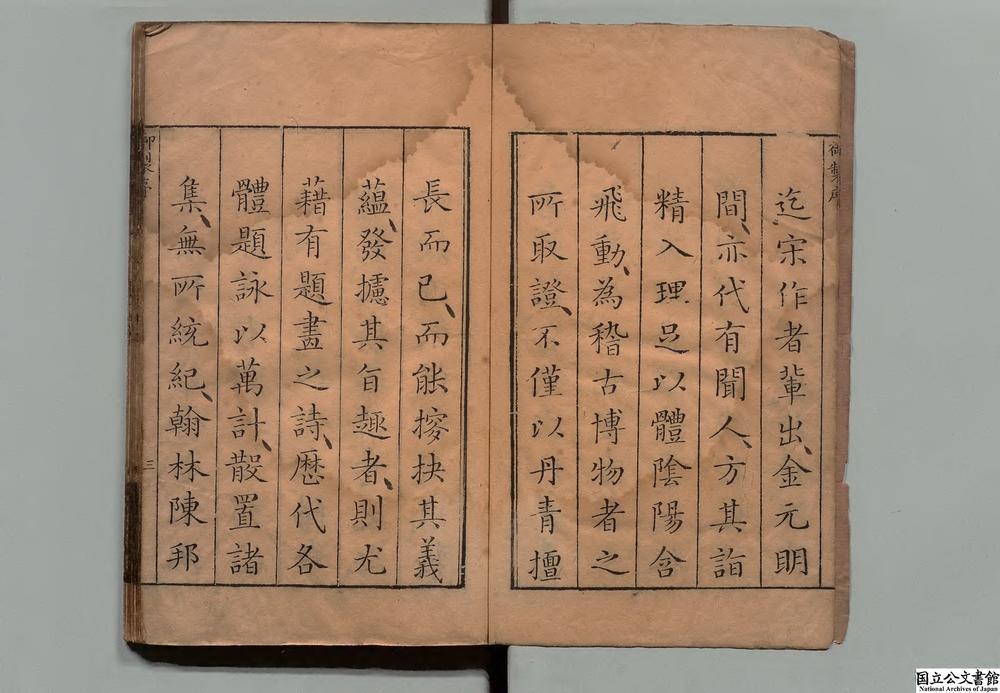 御製序
迄宋作者輩出、金元明
間、亦代有聞人、方其詣
精入理足以體陰陽含
飛動、為稽古博物者之
所取證、不僅以丹青擅
長而已、而能搀抉其義
蘊、發攄其旨趣者、則尤
藉有題畫之詩、歷代各
體題詠以萬計、散置諸
集、無所統紀、翰林陳邦
御製序
三
国立公文書館
National Archives of Japan